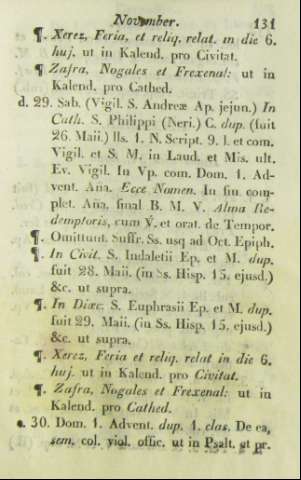 November. 131
¶. Xerez, Feria, et reliq. relat. in die 6.
huj. ut in Kalend. pro Civitat.
¶ Zafra, Nogales et Frexenal: ut in
Kalend. pro Cathed.
d. 29. Sab. (Vigil. S. Andreæ Ap. jejun.) In
Cath. S. Philippi (Neri.) C. dup. (fuit
26. Maii.) lls. 1. N. Script. 9. l. et com.
Vigil. et S. M. in Laud. et Mis. ult.
Ev. Vigil. In Vp. com. Dom. 1. Ad-
vent. Aña. Ecce Nomen. In fin. com-
plet. Aña. final B. M. V. Alma Re-
demptoris, cum V. et orat. de Tempor.
¶. Omittunt. Suffr. Ss. usq ad Oct. Epiph.
¶. In Civit. S. Indaletii Ep. et M. dup.
fuit 28. Maii. (in Ss. Hisp. 15. ejusd.)
&c. ut supra.
¶. In Diœc. S. Euphrasii Ep. et M. dup.
fuit 29. Maii. (in Ss. Hisp. 15. ejusd.)
&c. ut supra.
¶. Xerez, Feria et reliq. relat in die 6.
huj. ut in Kalend. pro Civitat.
¶. Zafra, Nogales et Frexenal: ut in
Kalend. pro Cathed.
30. Dom. 1. Advent. dup. 1. clas. De ea,
sem. col. viol. offic. ut in Psalt. et pr.